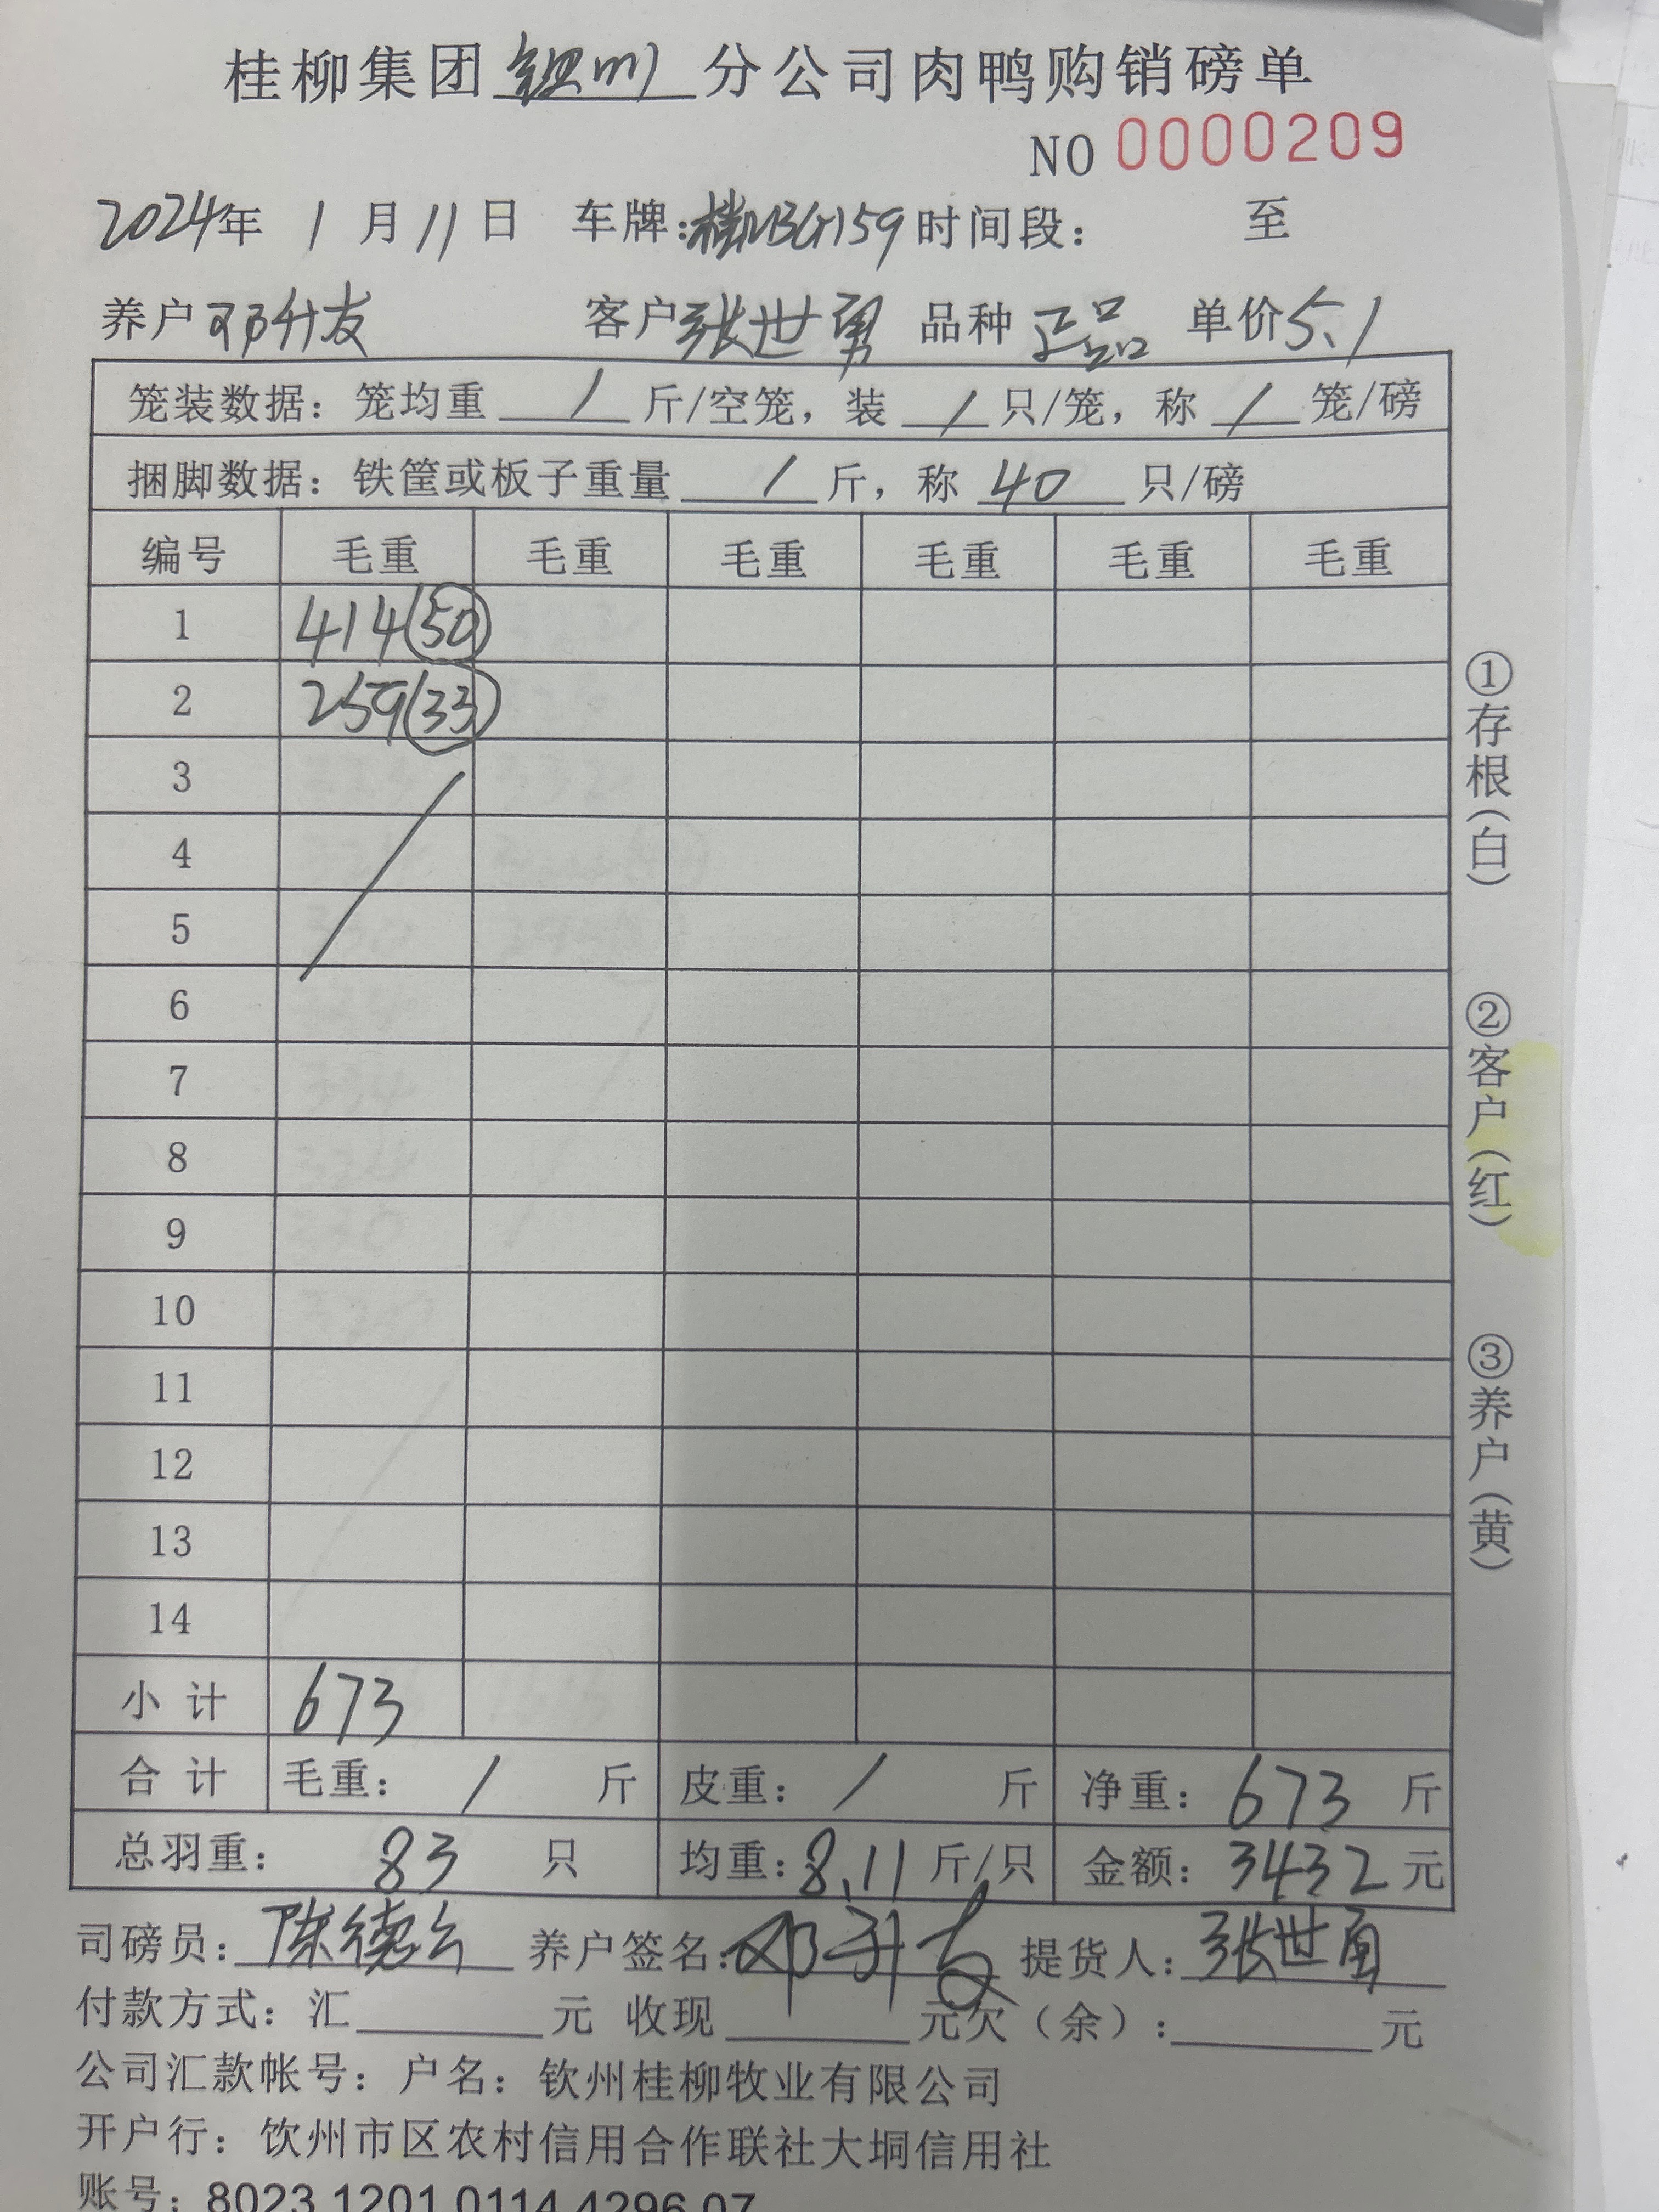 桂柳集团钦州分公司肉鸭购销磅单
NO 0000209
2024年 1月11日 车牌:桂NBG159 时间段: 至
养户 邓升友 客户 张世勇 品种 正品 单价 5.1
笼装数据: 笼均重 / 斤/空笼, 装 / 只/笼, 称 / 笼/磅
捆脚数据: 铁筐或板子重量 / 斤, 称 40 只/磅
编号 毛重 毛重 毛重 毛重 毛重 毛重
1 414(50)
2 259(33)
3
4
5
6
7
8
9
10
11
12
13
14
小计 673
合计 毛重: / 斤 皮重: / 斤 净重: 673 斤
总羽重: 83 只 均重: 8.11 斤/只 金额: 3432 元
司磅员: 陈德云 养户签名: 邓升友 提货人: 张世勇
付款方式: 汇 元 收现 元 欠(余): 元
公司汇款帐号: 户名: 钦州桂柳牧业有限公司
开户行: 钦州市区农村信用合作联社大垌信用社
账号: 8023 1201 0114 4296 07
①存根(白)
②客户(红)
③养户(黄)